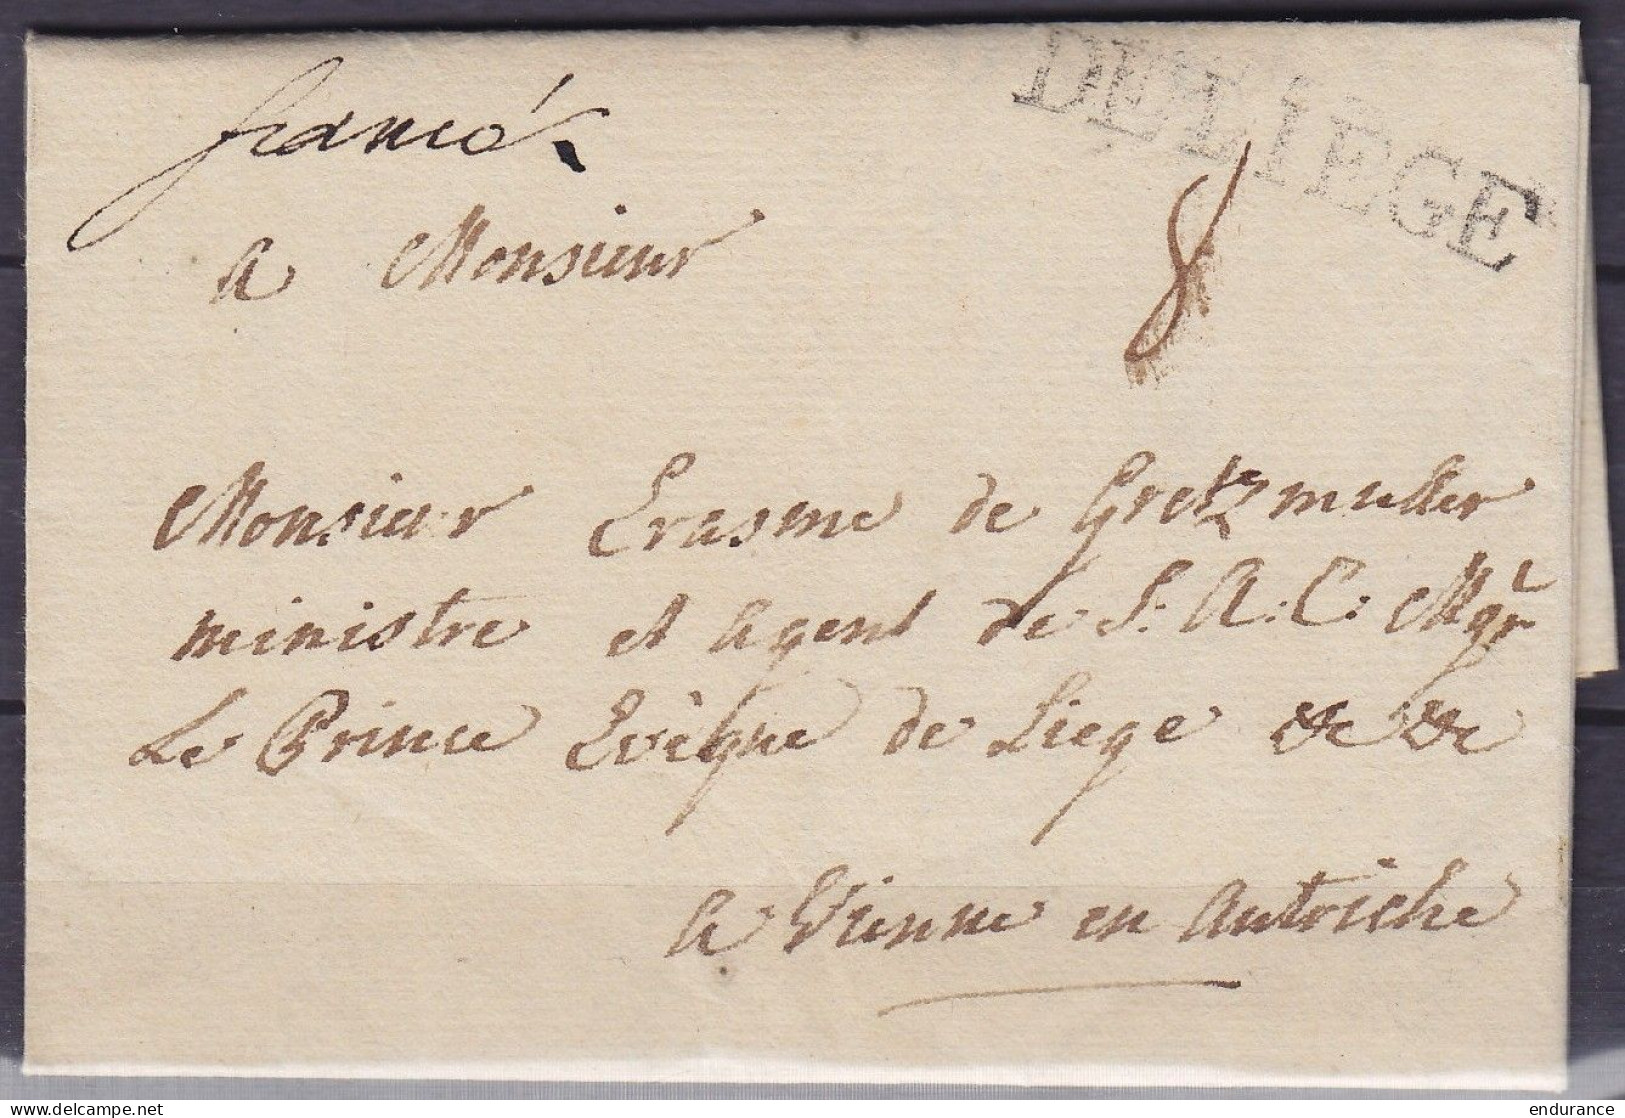 francò
DE LIEGE
8
A Monsieur
Monsieur Erasme de Gretzmuller
ministre et Agent de S. A. C. Mgr
Le Prince Evèque de Liege &c &c
A Vienne en Autriche
delcampe.net
endurance